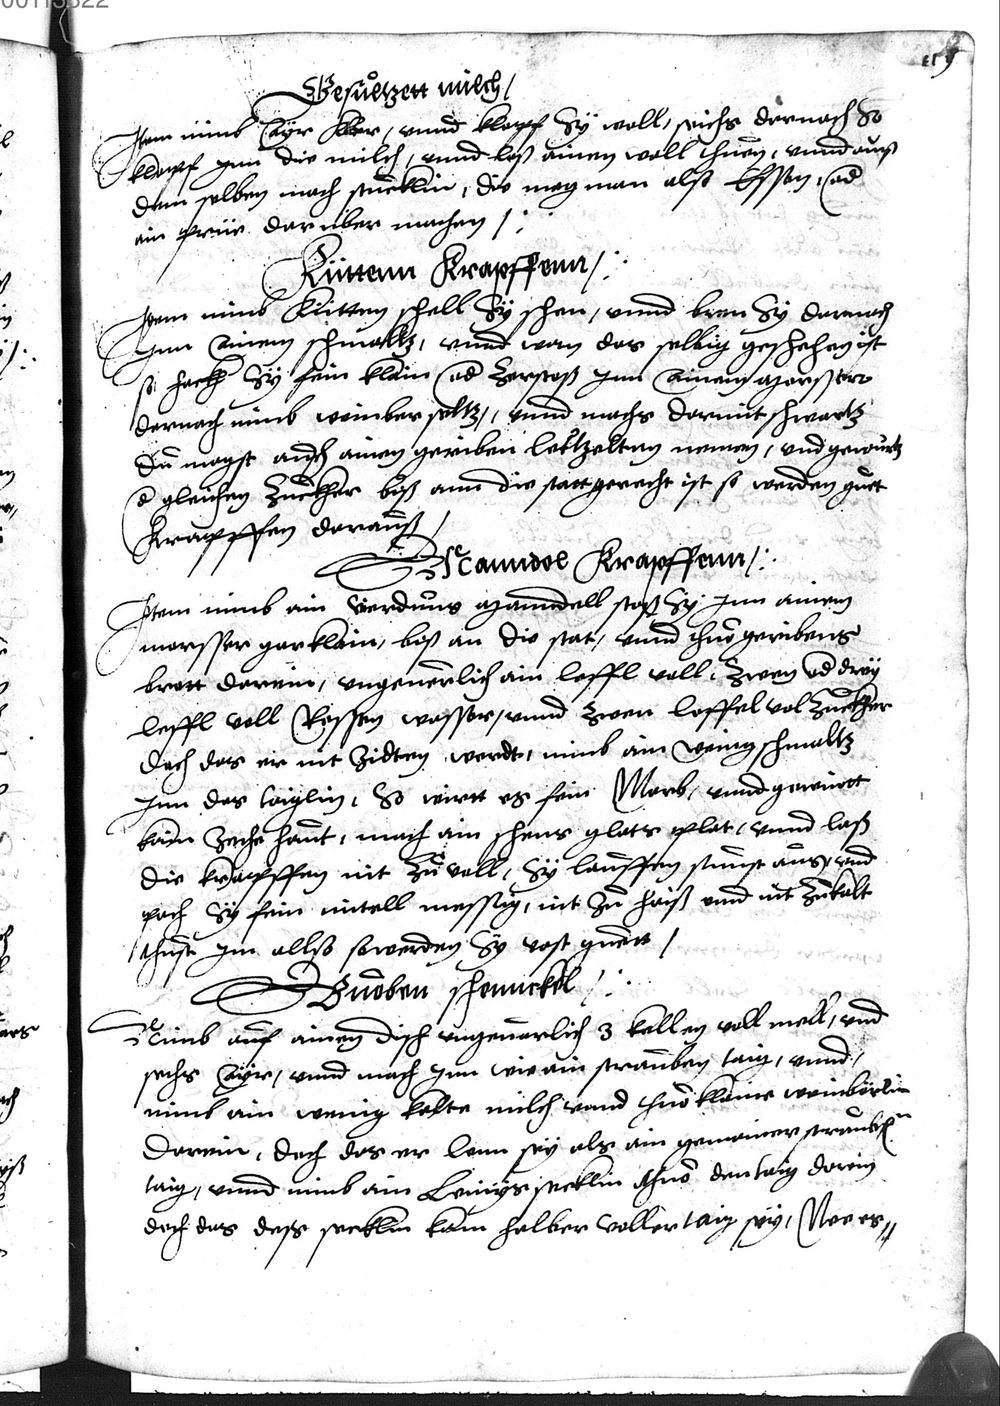 00113322
119
Gesultzett milch /
Item nimb Ayr klar, vnnd klopf Sy woll, seichs darnach So
klopf jnn die milch, vnnd laß ainen woll thuen, vnnd auß
dem selben mach stucklin, die mag man also Essen, od
ain prüe darüber machen /
Küttenn Krapffenn /
Item nimb Kütten schell Sy schen, vnnd bren Sy darnach
Jnn Ainem schmaltz, vnnd wan das selbig geschehen ist
so hackh Sy fein klain od Zerstoß jnn Ainem morsser
darnach nimb weinber seltz, vnnd machs darmit schwartz
Du magst auch ainen geriben letzelten nemen, vnd gewurtz
d gleichen Zuckher biß ann die statt gerecht ist so werden guet
Krapffen darauß /
Manndel Krapffenn /
Item nimb ain vierdung Manndell stoß Sy jnn ainem
morsser gar klain, biß an die stat, vnnd thuo geribens
brott darein, vngeuerlich ain leffl voll, Zwen od drey
leffl voll Rossen wasser, vnnd Zwen loffel vol Zuckher
doch das er nit Zidten werdt, nimb ain wenig schmaltz
jnn das taiglin, So wirtt es fein Marb, vnnd gewindt
kain Zeche haut, mach ain schens glats plat, vnnd laß
die krapffen nit Zu voll, Sy lauffen sunst auß vnd
pach Sy fein mitell messig, nit Zu haiß vnnd nit Zu kalt
thust jm also so werden Sy vast guett /
Buoben schenckel /
Nimb auf ainen disch vngeuarlich 3 kellen voll mell, vnd
sechs Ayr, vnnd mach jnn wie ain strauben taig, vnnd
nimb ain wenig kalte milch vnnd thuo klaine weinberlin
darein, doch das er lenn sey als ain gemainer strauben
taig, vnnd nimb ain Leinis secklin thuo den taig darein
doch das dess secklin kam halber voller taig sey, Nee es